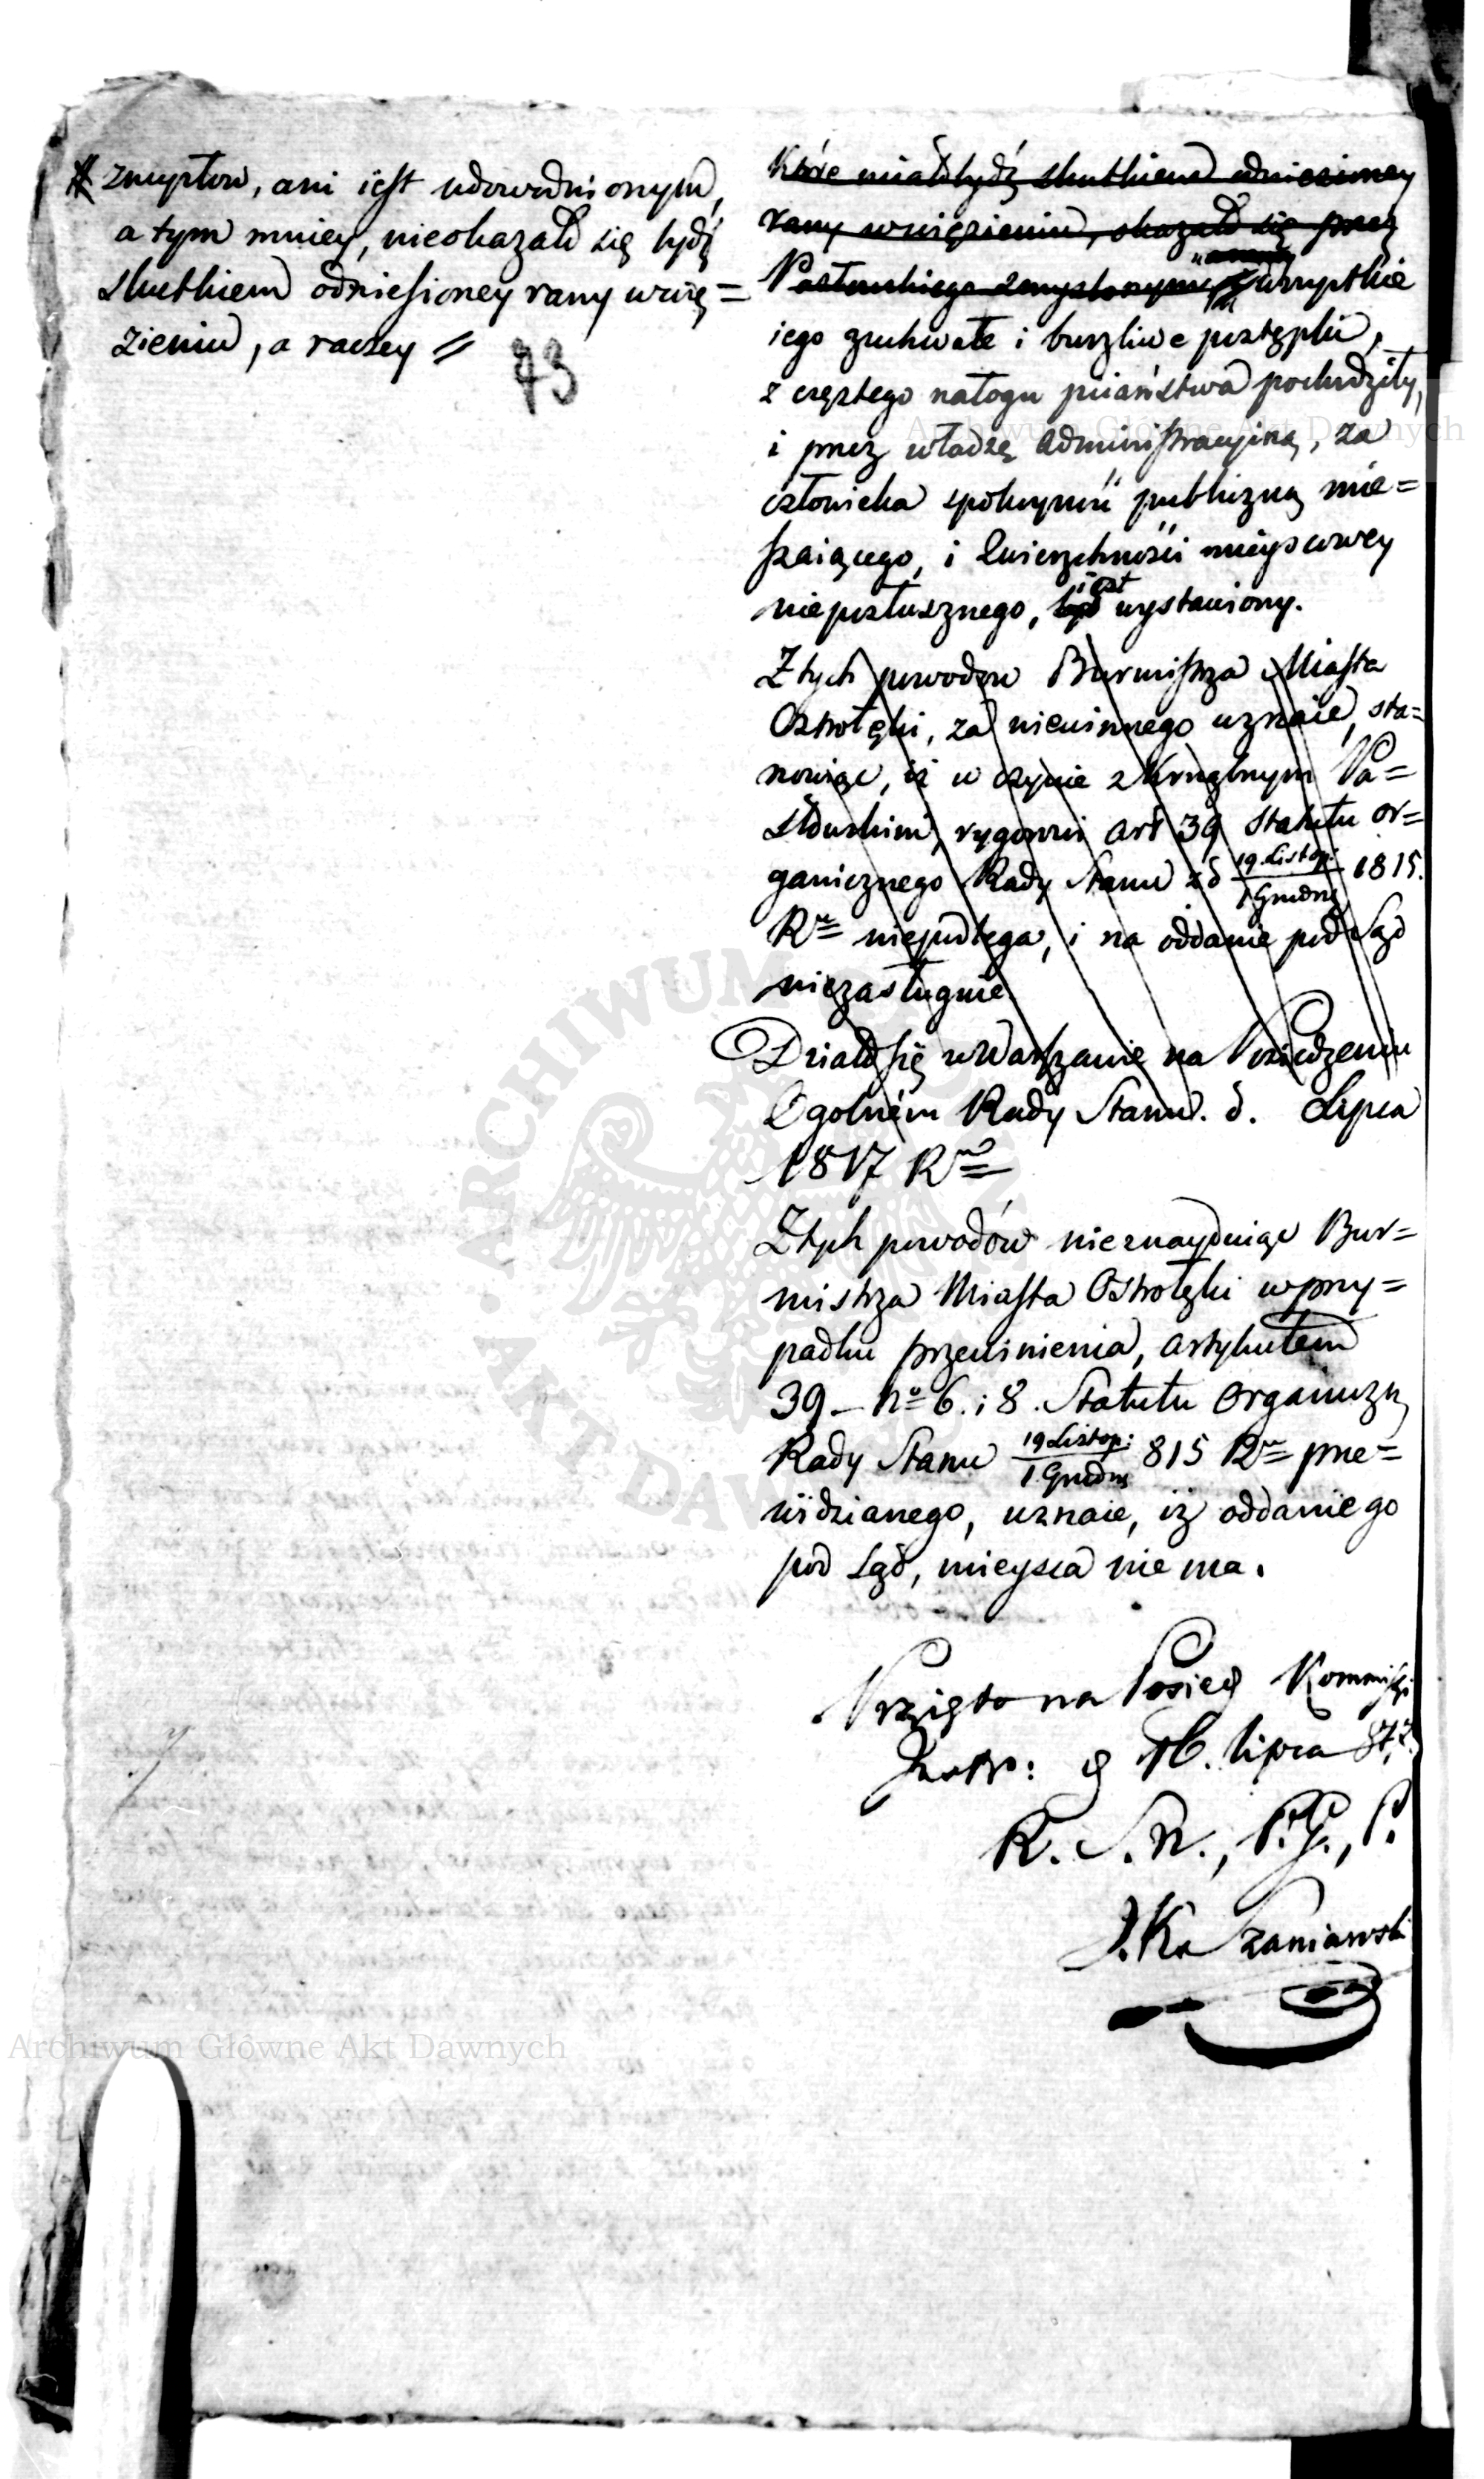 zmysłow, ani iest udowodnionym,
a tym mniey, nieokazało się bydź
skutkiem odniesioney rany w wię=
zieniu, a raczey //
73
które miało bydź skutkiem odniesioney
rany w więzieniu, okazało się przez
Pastuskiego zmyslonym, wszystkie
iego zuchwałe i burzliwe postępki,
z częstego nałogu piiaństwa pochodziły,
i przez władzę Administracyiną, za
człowieka spokoyność publiczną mie=
szaiącego, i Zwierzchności mieyscowey
nieposłusznego, iest wystawiony.
Z tych powodow Burmistrza Miasta
Ostrołęki, za niewinnego uznaie, sta=
nowiąc, iż w czynie z Pa=
stuskim, rygorowi art 39 Statutu or=
ganicznego Rady Stanu z d 19. Listop: 1815.
1 Grudnia
Ru niepodlega, i na oddanie pod Sąd
niezasługuie.
Działo się w Warszawie na Posiedzeniu
Ogolném Rady Stanu. d. Lipca
1817 Ru
Z tych powodów nieznayduiąc Bur=
mistrza Miasta Ostrołęki w przy=
padku przewinienia, artykułem
39 - No 6. i 8. Statutu Organiczn
Rady Stanu 19 Listop: 815 Ru prze=
1 Grudnia
widzianego, uznaie, iż oddanie go
pod Sąd, mieysca nie ma.
Przyięto na Posied Kommissyi
Instr: d 16. lipca 817.
R. S. N., P. G., P.
J. Ka Szaniawski
Archiwum Główne Akt Dawnych
Archiwum Główne Akt Dawnych
ARCHIWUM GŁÓWNE AKT DAWNYCH